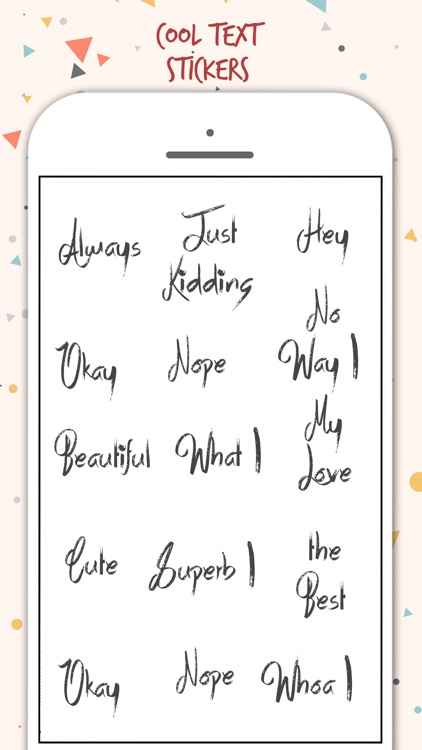 COOL TEXT
STICKERS
Always
Just
Kidding
Hey
Okay
Nope
No
Way !
Beautiful
What !
My
Love
Cute
Superb !
the
Best
Okay
Nope
Whoa !